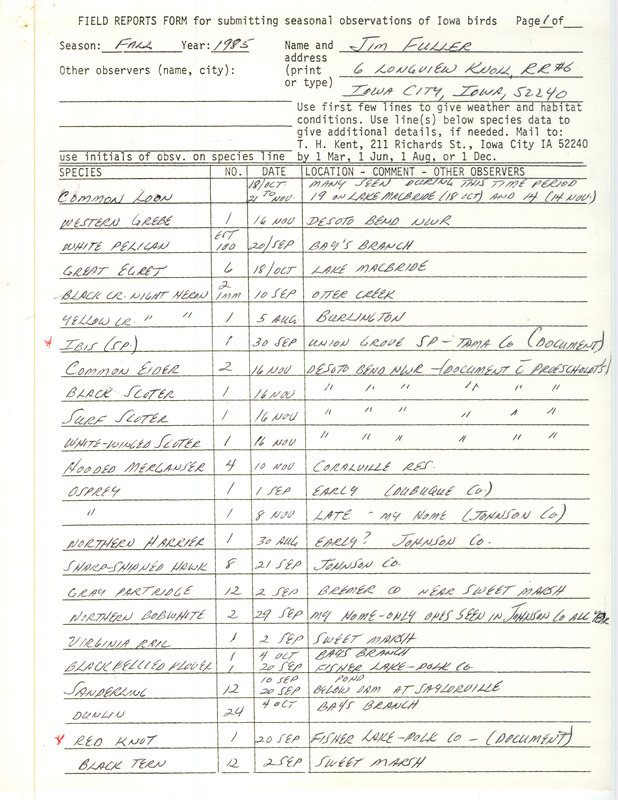 FIELD REPORTS FORM for submitting seasonal observations of Iowa birds Page 1 of
Season: FALL Year: 1985 Name and address (print or type) JIM FULLER
Other observers (name, city): 6 LONGVIEW KNOLL, RR#6
IOWA CITY, IOWA, 52240
Use first few lines to give weather and habitat
conditions. Use line(s) below species data to
give additional details, if needed. Mail to:
T. H. Kent, 211 Richards St., Iowa City IA 52240
use initials of obsv. on species line by 1 Mar, 1 Jun, 1 Aug, or 1 Dec.
SPECIES NO. DATE LOCATION - COMMENT - OTHER OBSERVERS
COMMON LOON 18/OCT TO 21 NOV. MANY SEEN DURING THIS TIME PERIOD
19 ON LAKE MACBRIDE (18 OCT) AND 14 (14 NOV.)
WESTERN GREBE 1 16 NOV DESOTO BEND NWR
WHITE PELICAN EST 100 20/SEP BAY'S BRANCH
GREAT EGRET 6 18/OCT LAKE MACBRIDE
BLACK CR. NIGHT HERON 2 1mm 10 SEP OTTER CREEK
YELLOW CR. " " 1 5 AUG BURLINGTON
* IBIS (SP.) 1 30 SEP UNION GROVE SP - TAMA CO (DOCUMENT)
COMMON EIDER 2 16 NOV DESOTO BEND NWR - (DOCUMENT c̄ PROESCHOLDTS)
BLACK SCOTER 1 16 NOV " " " " " "
SURF SCOTER 1 16 NOV " " " " " "
WHITE-WINGED SCOTER 1 16 NOV " " " " " "
HOODED MERGANSER 4 10 NOV CORALVILLE RES.
OSPREY 1 1 SEP EARLY (DUBUQUE CO)
" 1 8 NOV LATE - MY HOME (JOHNSON CO)
NORTHERN HARRIER 1 30 AUG EARLY? JOHNSON CO.
SHARP-SHINNED HAWK 8 21 SEP JOHNSON CO.
GRAY PARTRIDGE 12 2 SEP BREMER CO NEAR SWEET MARSH
NORTHERN BOBWHITE 2 29 SEP MY HOME-ONLY ONES SEEN IN JOHNSON CO ALL YEAR
VIRGINIA RAIL 1 2 SEP SWEET MARSH
1 4 OCT BAYS BRANCH
BLACK BELLIED PLOVER 1 20 SEP FISHER LAKE-POLK CO.
10 SEP POND
SANDERLING 12 20 SEP BELOW DAM AT SAYLORVILLE
DUNLIN 24 4 OCT BAYS BRANCH
* RED KNOT 1 20 SEP FISHER LAKE-POLK CO - (DOCUMENT)
BLACK TERN 12 2 SEP SWEET MARSH